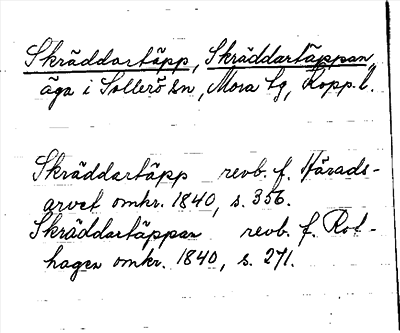 Skräddartäpp, Skräddartäppan,
äga i Sollerö sn, Mora tg, Kopp. l.
Skräddartäpp revb. f. Härads-
arvet omkr. 1840, s. 356.
Skräddartäppan revb. f. Rot-
hagen omkr. 1840, s. 271.